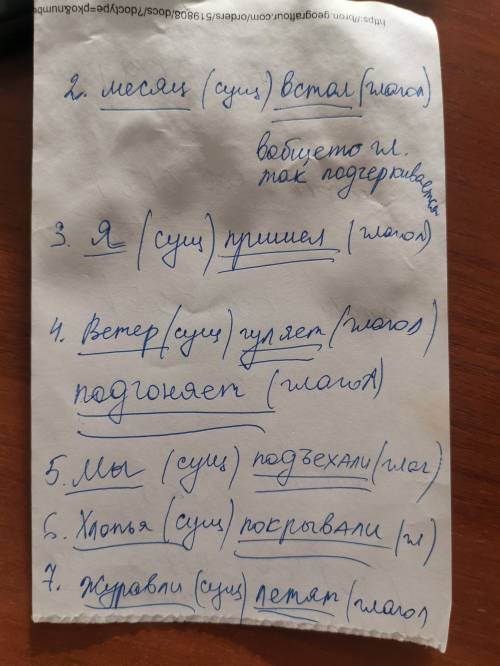 https://bron.geografiour.com/orders/519808/docs/?doctype=pko&numbe
2. месяц (сущ) встал (глагол)
вабщето гл.
так подчеркивается
3. Я (сущ) пришел (глагол)
4. Ветер (сущ) гуляет (глагол)
подгоняет (глагол)
5. Мы (сущ) подъехали (глаг)
6. Хлопья (сущ) покрывали (гл)
7. Журавли (сущ) летят (глагол